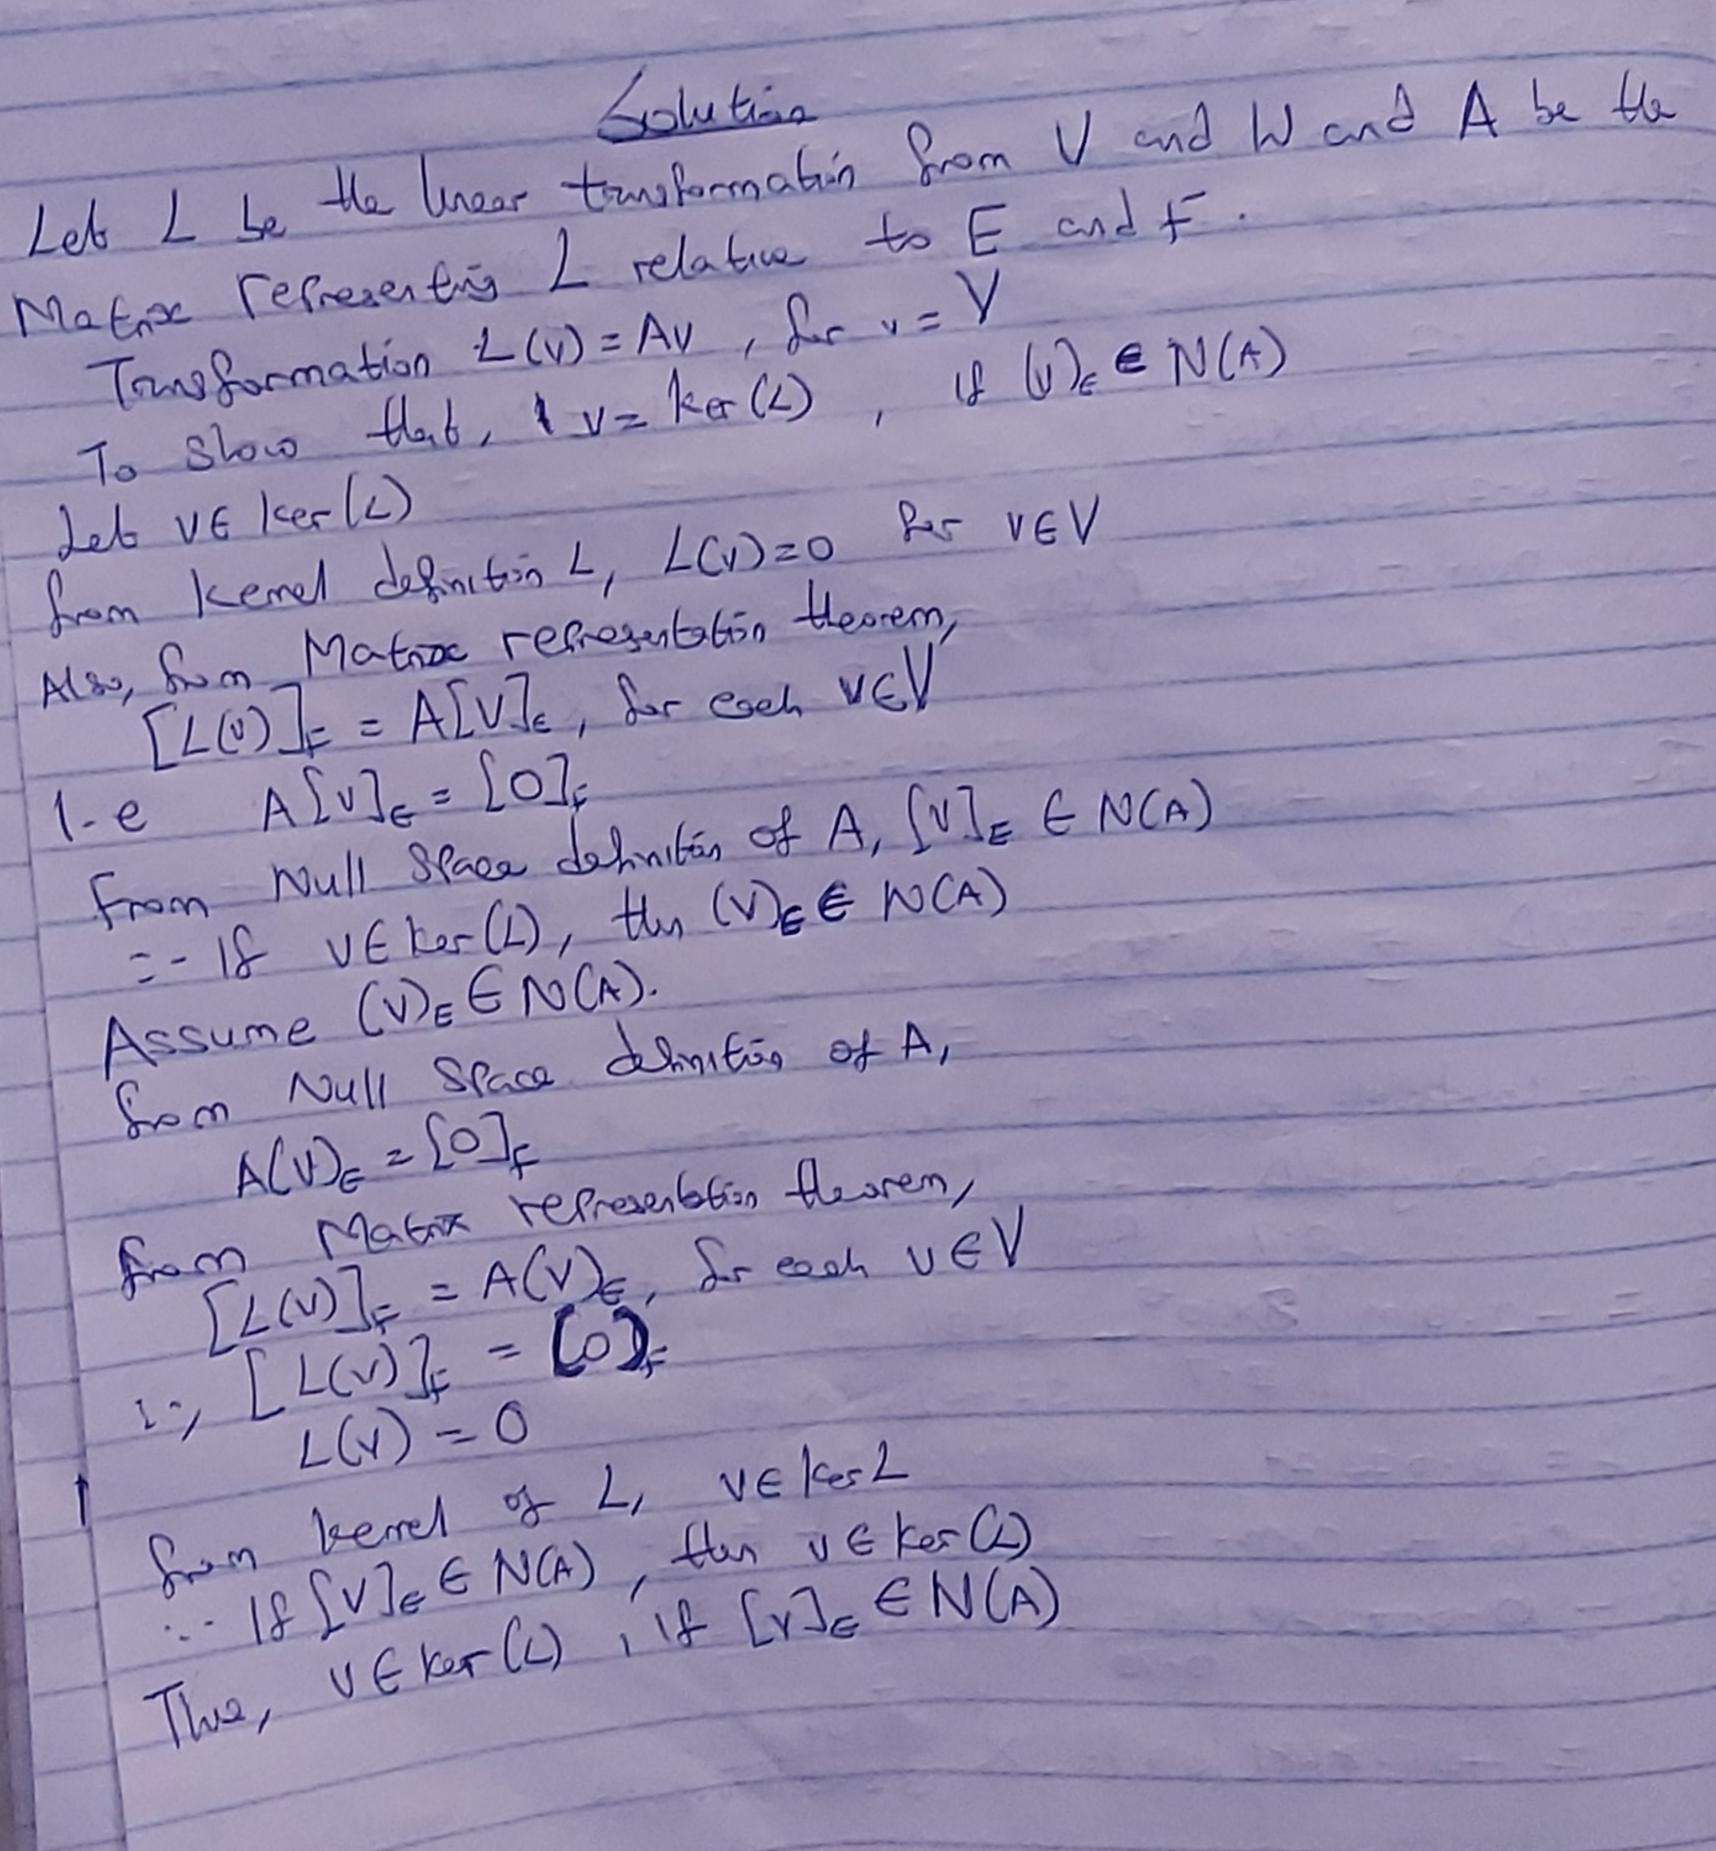 Solution
Let L be the linear transformation from V and W and A be the
Matrix representing L relative to E and F.
Transformation L(v) = Av, for v = V
To show that, v = ker(L), if (v)E ∈ N(A)
Let v ∈ ker(L)
from kernel definition L, L(v) = 0 for v ∈ V
Also, from Matrix representation theorem,
[L(v)]F = A[v]E, for each v ∈ V
i.e A[v]E = [0]F
From Null Space definition of A, [v]E ∈ N(A)
∴ If v ∈ ker(L), then (v)E ∈ N(A)
Assume (v)E ∈ N(A).
from Null Space definition of A,
A(v)E = [0]F
from Matrix representation theorem,
[L(v)]F = A(v)E, for each v ∈ V
∴, [L(v)]F = [0]F
L(v) = 0
from kernel of L, v ∈ ker L
∴ If [v]E ∈ N(A), then v ∈ ker(L)
Thus, v ∈ ker(L), if [v]E ∈ N(A)